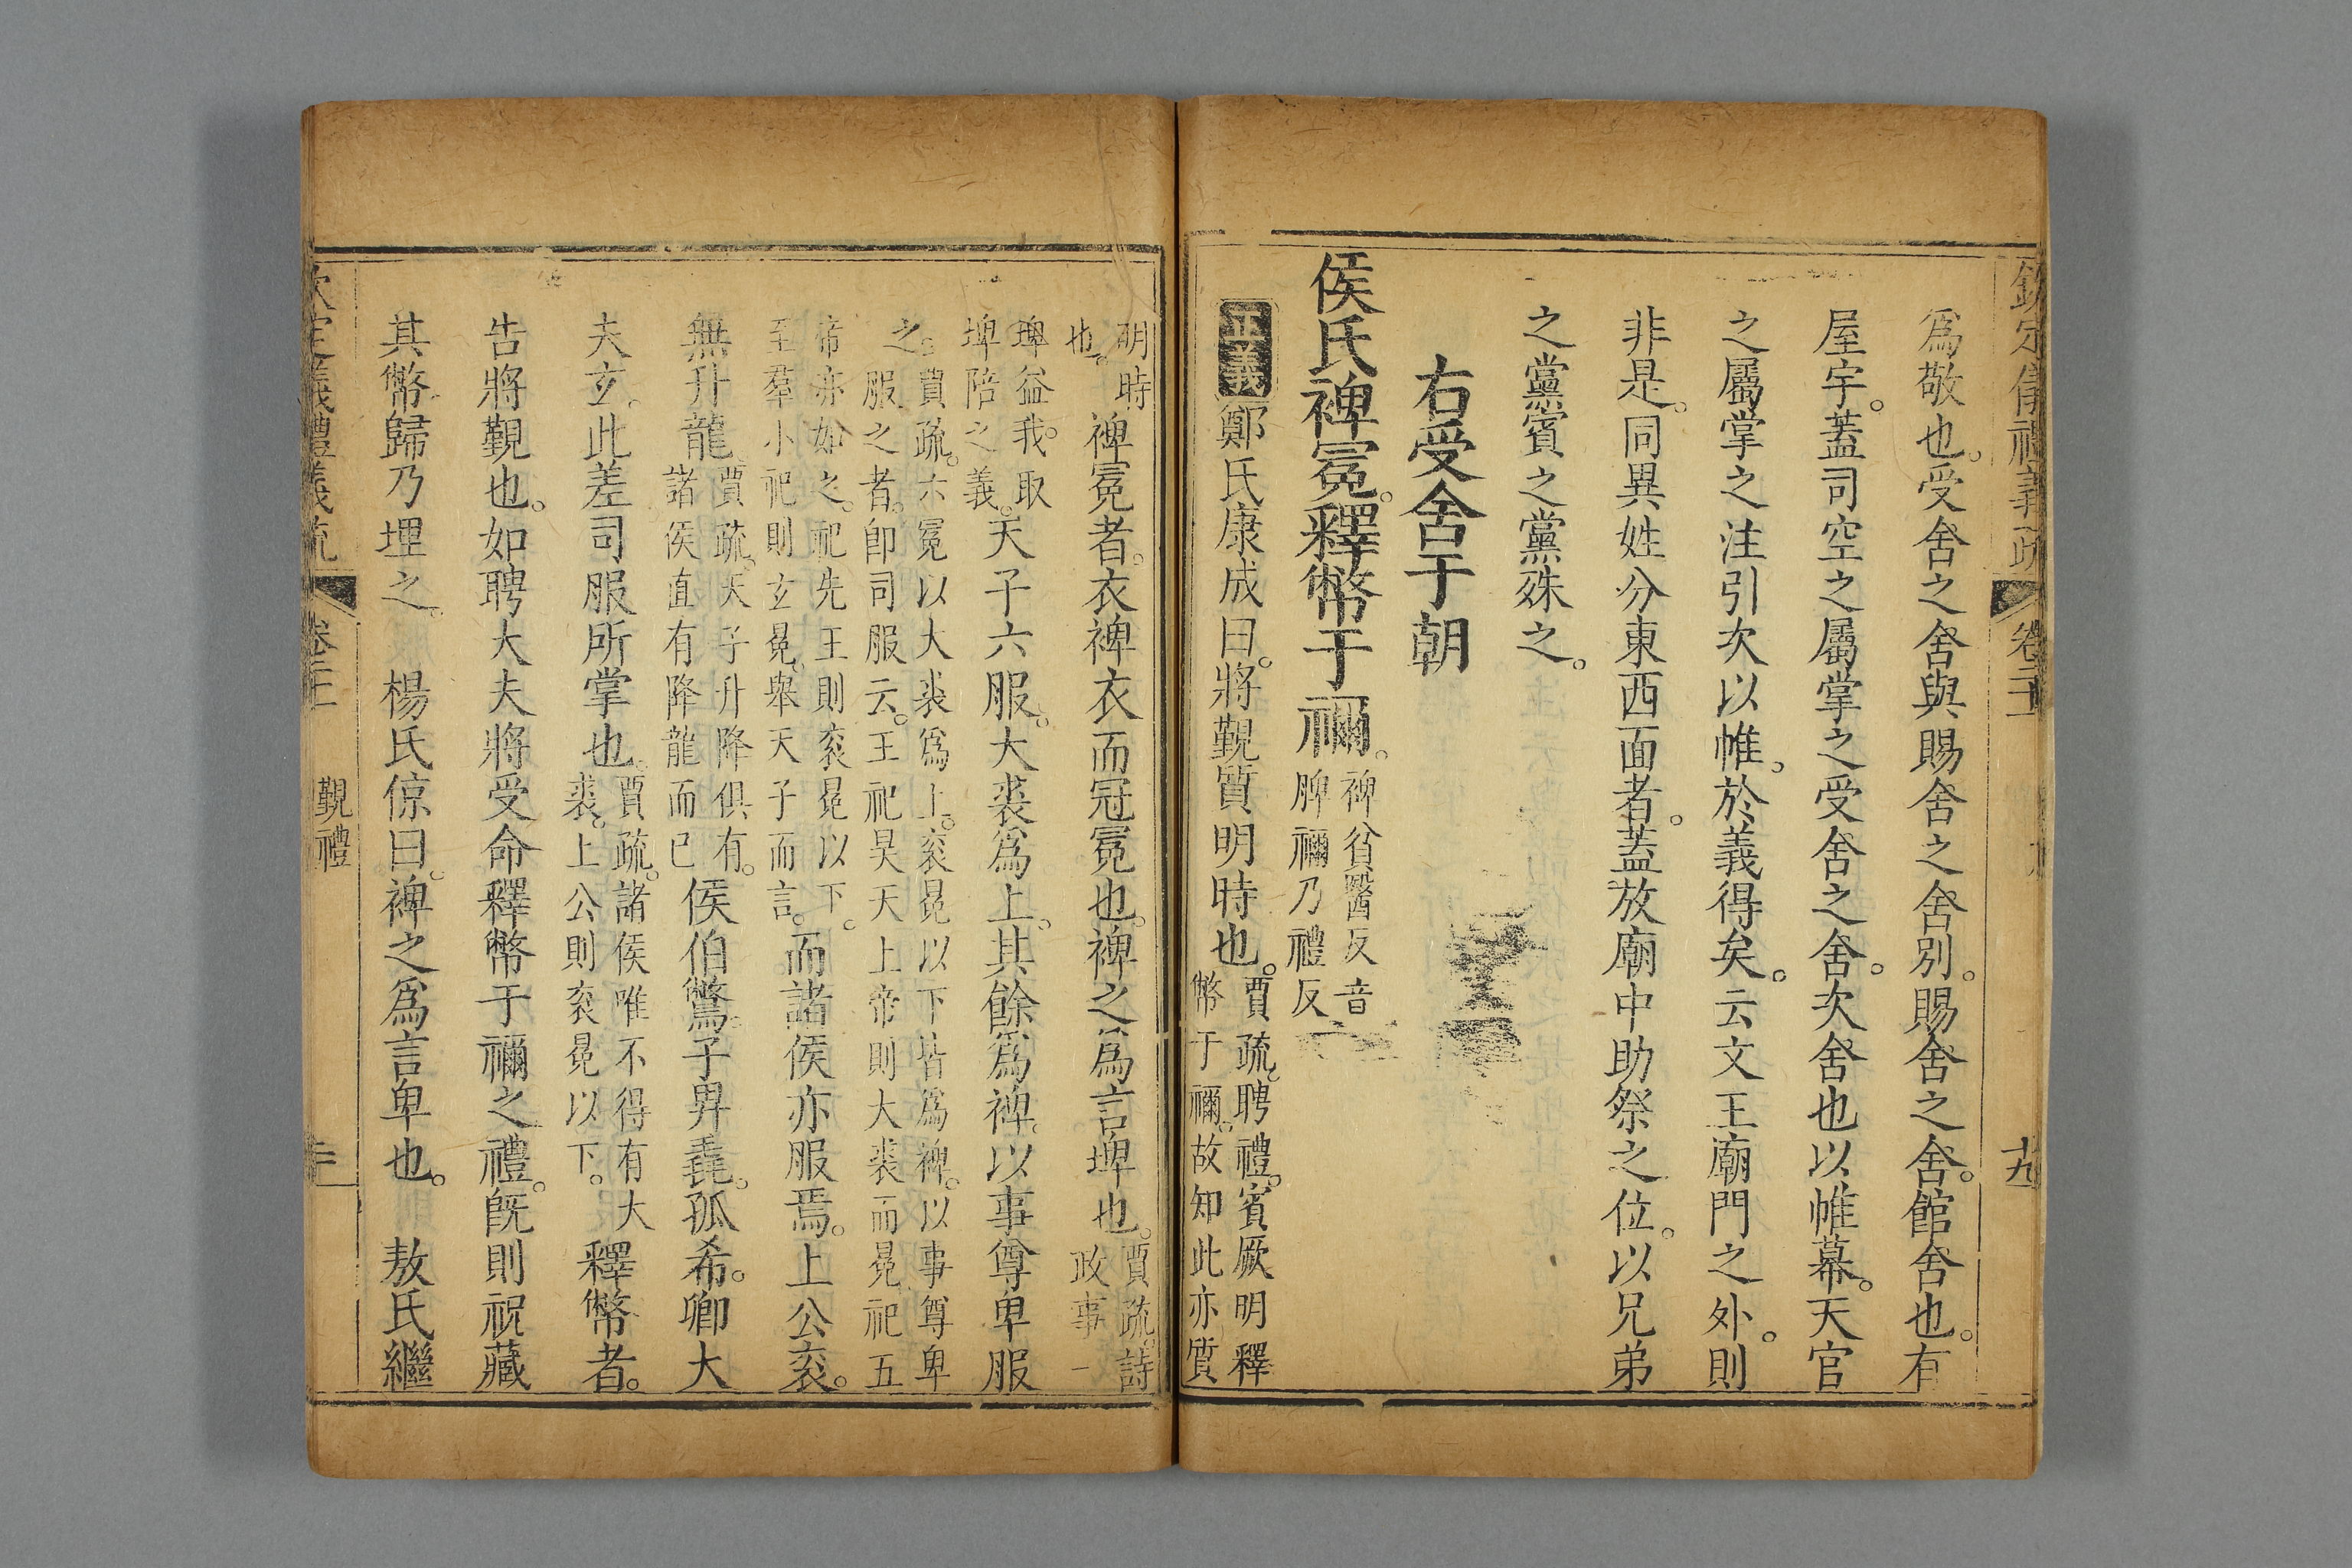 欽定儀禮義疏 卷二十 十九
爲敬也。受舍之舍與賜舍之舍別。賜舍之舍。館舍也。有
屋宇。蓋司空之屬掌之受舍之舍。次舍也以帷幕。天官
之屬掌之注引次以帷。於義得矣。云文王廟門之外。則
非是。同異姓分東西面者。蓋放廟中助祭之位。以兄弟
之黨賓之黨殊之。
右受舍于朝
侯氏裨冕。釋幣于禰。裨貧醫反音
脾禰乃禮反
正義 鄭氏康成曰。將覲質明時也。賈疏。聘禮。賓厥明釋
幣于禰。故知此亦質
明時
也。
裨冕者。衣裨衣而冠冕也。裨之爲言埤也。賈疏。詩
政事一
埤益我。取
埤陪之義。
天子六服。大裘爲上。其餘爲裨。以事尊卑服
之。賈疏。六冕以大裘爲上。衮冕以下皆爲裨。以事尊卑
服之者。卽司服云。王祀昊天上帝則大裘而冕祀五
帝亦如之。祀先王則衮冕以下。
至羣小祀則玄冕。舉天子而言。
而諸侯亦服焉。上公衮。
無升龍。賈疏。天子升降俱有。
諸侯直有降龍而已
侯伯鷩。子男毳。孤希。卿大
夫玄。此差司服所掌也。賈疏。諸侯唯不得有大
裘。上公則衮冕以下。
釋幣者。
告將覲也。如聘大夫將受命釋幣于禰之禮。旣則祝藏
其幣。歸乃埋之。 楊氏倞曰。裨之爲言卑也。 敖氏繼
欽定儀禮義疏 卷二十 覲禮 二十